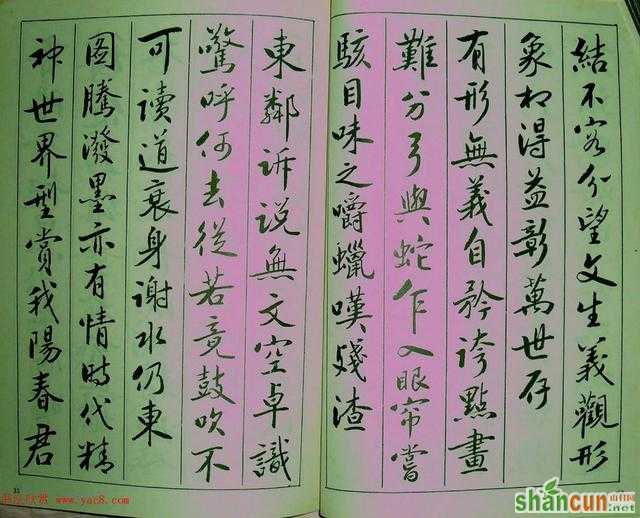 結不容分望文生義觀形
象相得益彰萬世存
有形無義自矜誇點畫
難分弓與蛇乍入眼帘嘗
駭目味之嚼蠟嘆殘渣
東鄰訴説無文空卓識
驚呼何去從若竟鼓吹不
可讀道衰身謝水仍東
圖騰潑墨亦有情時代精
神世界型賞我陽春君
www.yac8.com
shancun
山村网
.net